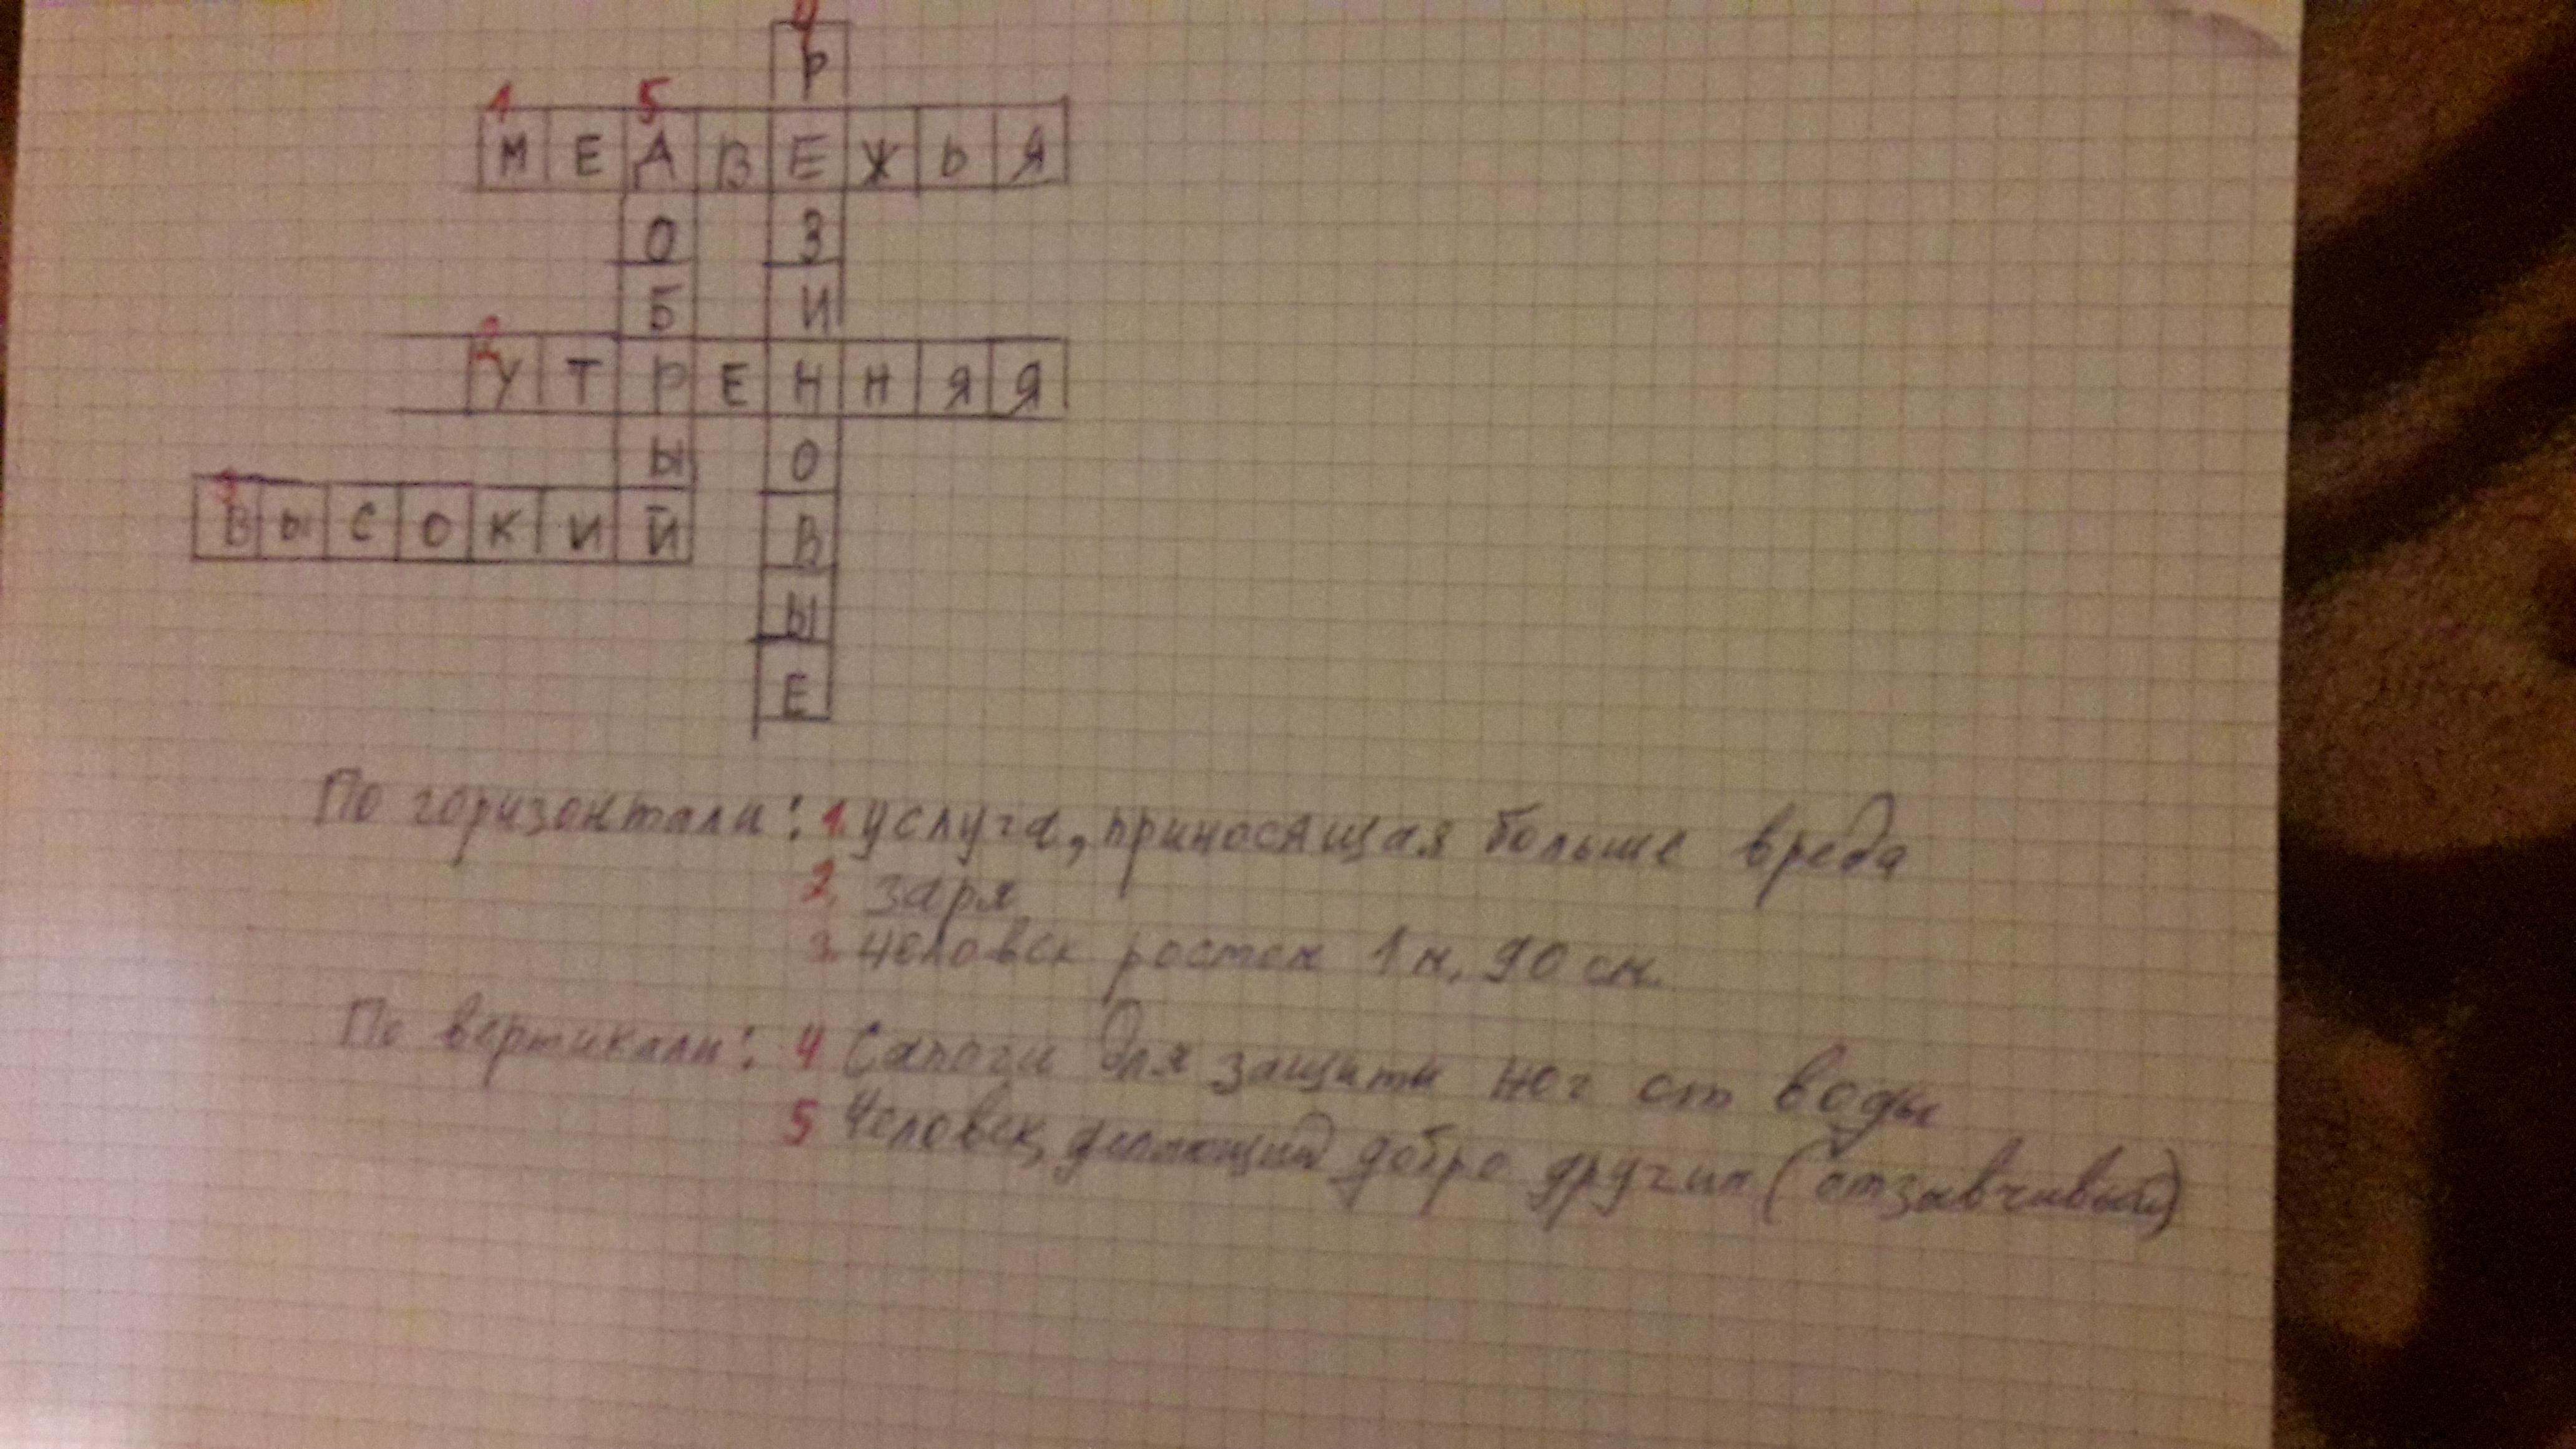 4
Р
1 5
М Е Д В Е Ж Ь Я
О З
Б И
2
У Т Р Е Н Н Я Я
Ы О
3
В Ы С О К И Й В
Ы
Е
По горизонтали: 1. услуга, приносящая больше вреда
2. заря
3. человек ростом 1 м. 90 см.
По вертикали: 4 Сапоги для защиты ног от воды
5 Человек, делающий добро другим (отзывчивый)